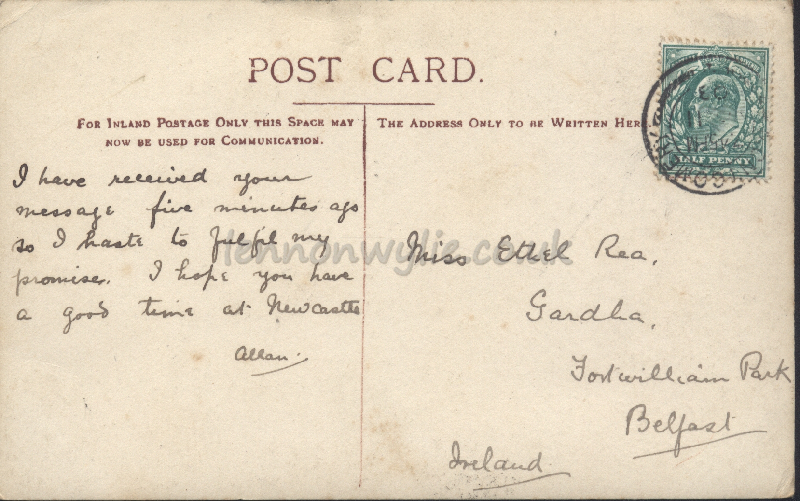 POST CARD.
FOR INLAND POSTAGE ONLY THIS SPACE MAY
NOW BE USED FOR COMMUNICATION.
THE ADDRESS ONLY TO BE WRITTEN HER
HALF PENNY
I have received your
message five minutes ago
so I haste to fulfil my
promise. I hope you have
a good time at Newcastle
Allan.
Miss Ethel Rea,
Gardha,
Fortwilliam Park
Belfast
Ireland
lennonwylie.co.uk